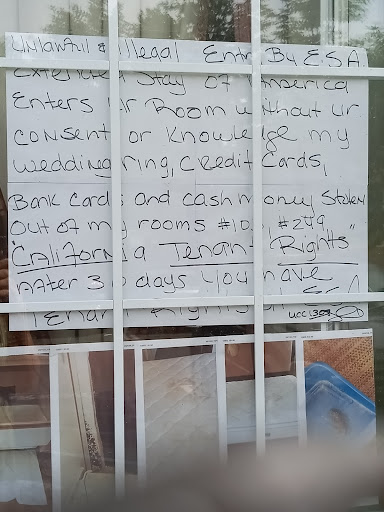 UNLawful & illegal Entr By E.S.A
Extended Stay of America
Enters Ur Room without Ur
consent or knowledge my
wedding ring, credit cards,
Bank cards and cash money Stolen
out of my rooms #10 , #249
"California Tenant Rights"
After 30 days you have
Tenant Rights